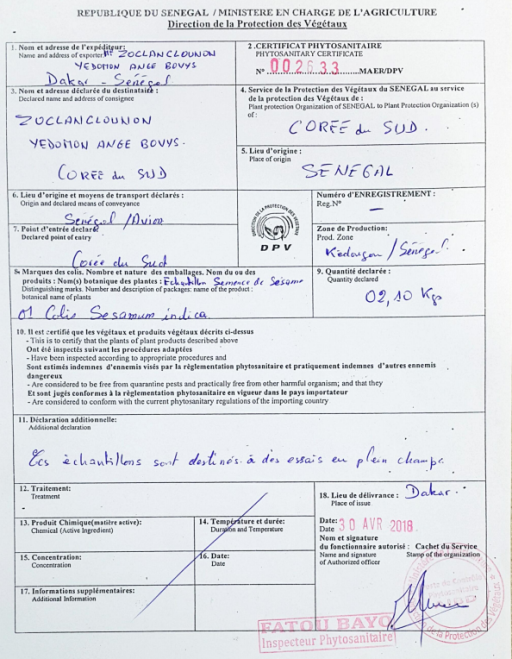 REPUBLIQUE DU SENEGAL / MINISTERE EN CHARGE DE L'AGRICULTURE
Direction de la Protection des Végétaux
1. Nom et adresse de l'expéditeur: Mr ZOCLANCLOUNON
Name and address of exporter
YEDOMON ANGE BOVYS
Dakar - Sénégal
2 .CERTIFICAT PHYTOSANITAIRE
PHYTOSANITARY CERTIFICATE
N° 002633 MAER/DPV
3. Nom et adresse déclarée du destinataire :
Declared name and address of consignee
ZOCLANCLOUNON
YEDOMON ANGE BOVYS.
CORÉE du SUD
4. Service de la Protection des Végétaux du SENEGAL au service
de la protection des Végétaux de :
Plant protection Organization of SENEGAL to Plant Protection Organization (s)
of :
CORÉE du SUD.
5. Lieu d'origine :
Place of origin
SENEGAL
6. Lieu d'origine et moyens de transport déclarés :
Origin and declared means of conveyance
Sénégal / Avion
7. Point d'entrée déclaré
Declared point of entry
Corée du Sud
DIRECTION DE LA PROTECTION DES VEGETAUX
DPV
Numéro d'ENREGISTREMENT :
Reg.N°
—
Zone de Production:
Prod. Zone
Kédougou / Sénégal
8. Marques des colis. Nombre et nature des emballages. Nom du ou des
produits : Nom(s) botanique des plantes : Echantillon Semence de Sésame
Distinguishing marks. Number and description of packages: name of the product :
botanical name of plants
01 Colis Sesamum indica
9. Quantité déclarée :
Quantity declared
02,10 Kgs
10. Il est certifié que les végétaux et produits végétaux décrits ci-dessus
- This is to certify that the plants of plant products described above
Ont été inspectés suivant les procédures adaptées
- Have been inspected according to appropriate procedures and
Sont estimés indemnes d'ennemis visés par la règlementation phytosanitaire et pratiquement indemnes d'autres ennemis
dangereux
- Are considered to be free from quarantine pests and practically free from other harmful organism; and that they
Et sont jugés conformes à la règlementation phytosanitaire en vigueur dans le pays importateur
- Are considered to conform with the current phytosanitary regulations of the importing country
11. Déclaration additionnelle:
Additional declaration
Ces échantillons sont destinés à des essais en plein champs
12. Traitement:
Treatment
13. Produit Chimique(matière active):
Chemical (Active Ingredient)
14. Température et durée:
Duration and Temperature
15. Concentration:
Concentration
16. Date:
Date
17. Informations supplémentaires:
Additional Information
18. Lieu de délivrance : Dakar.
Place of issue
Date:
Date 30 AVR 2018
Nom et signature
du fonctionnaire autorisé : Cachet du Service
Name and signature Stamp of the organization
of Authorized officer
FATOU BAYO
Inspecteur Phytosanitaire